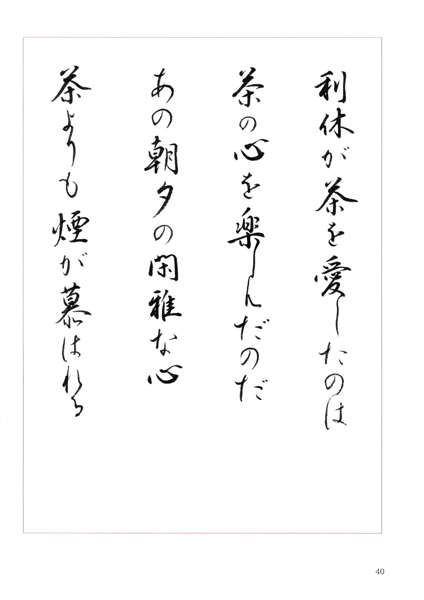 利休が茶を愛したのは
茶の心を楽しんだのだ
あの朝夕の閑雅な心
茶よりも煙が慕はれる
40